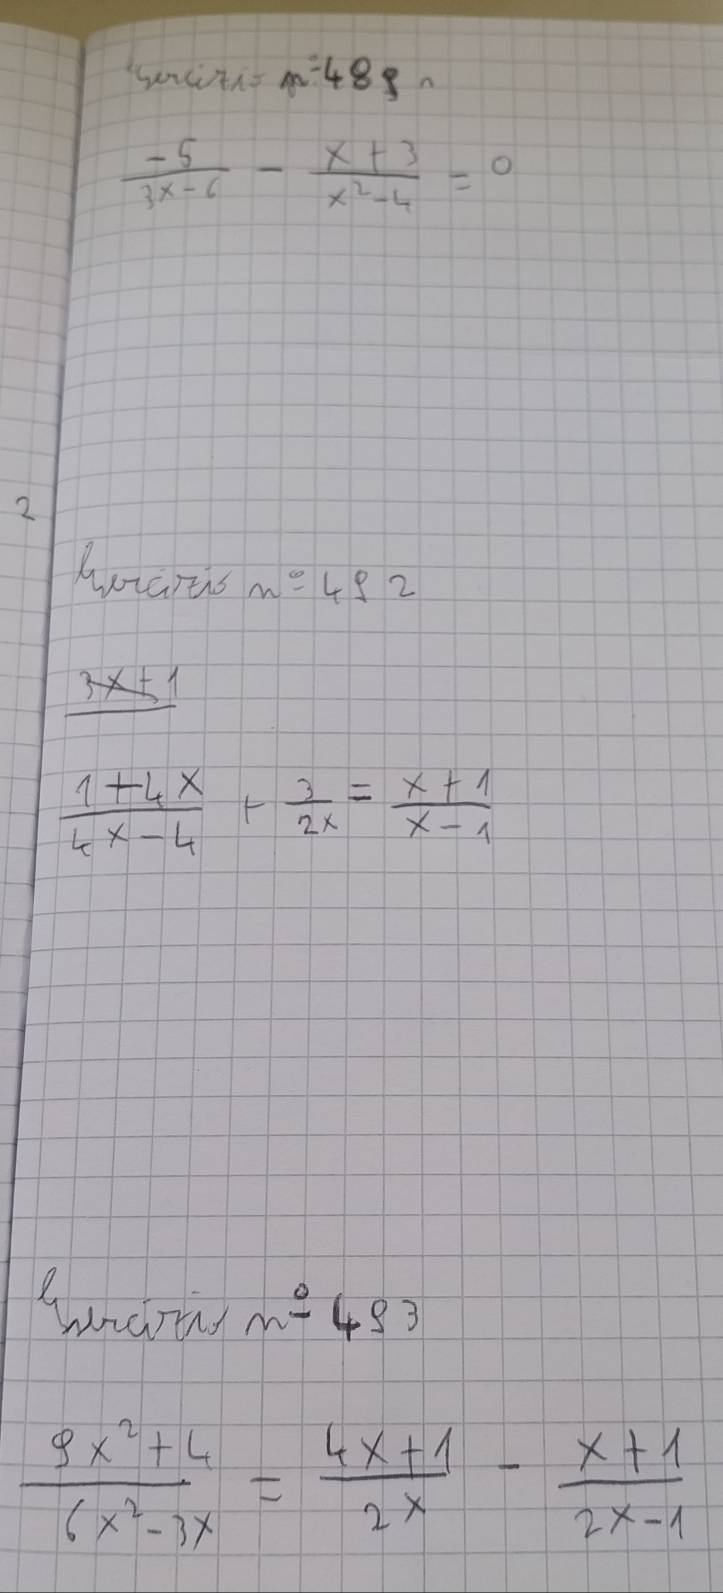 Esercizio n° 489
-5/(3x-6) - (x+3)/(x²-4) = 0
2
Esercizio n° 492
3x+1
(1+4x)/(4x-4) + 3/(2x) = (x+1)/(x-1)
Esercizio n° 493
(9x²+4)/(6x²-3x) = (4x+1)/(2x) - (x+1)/(2x-1)